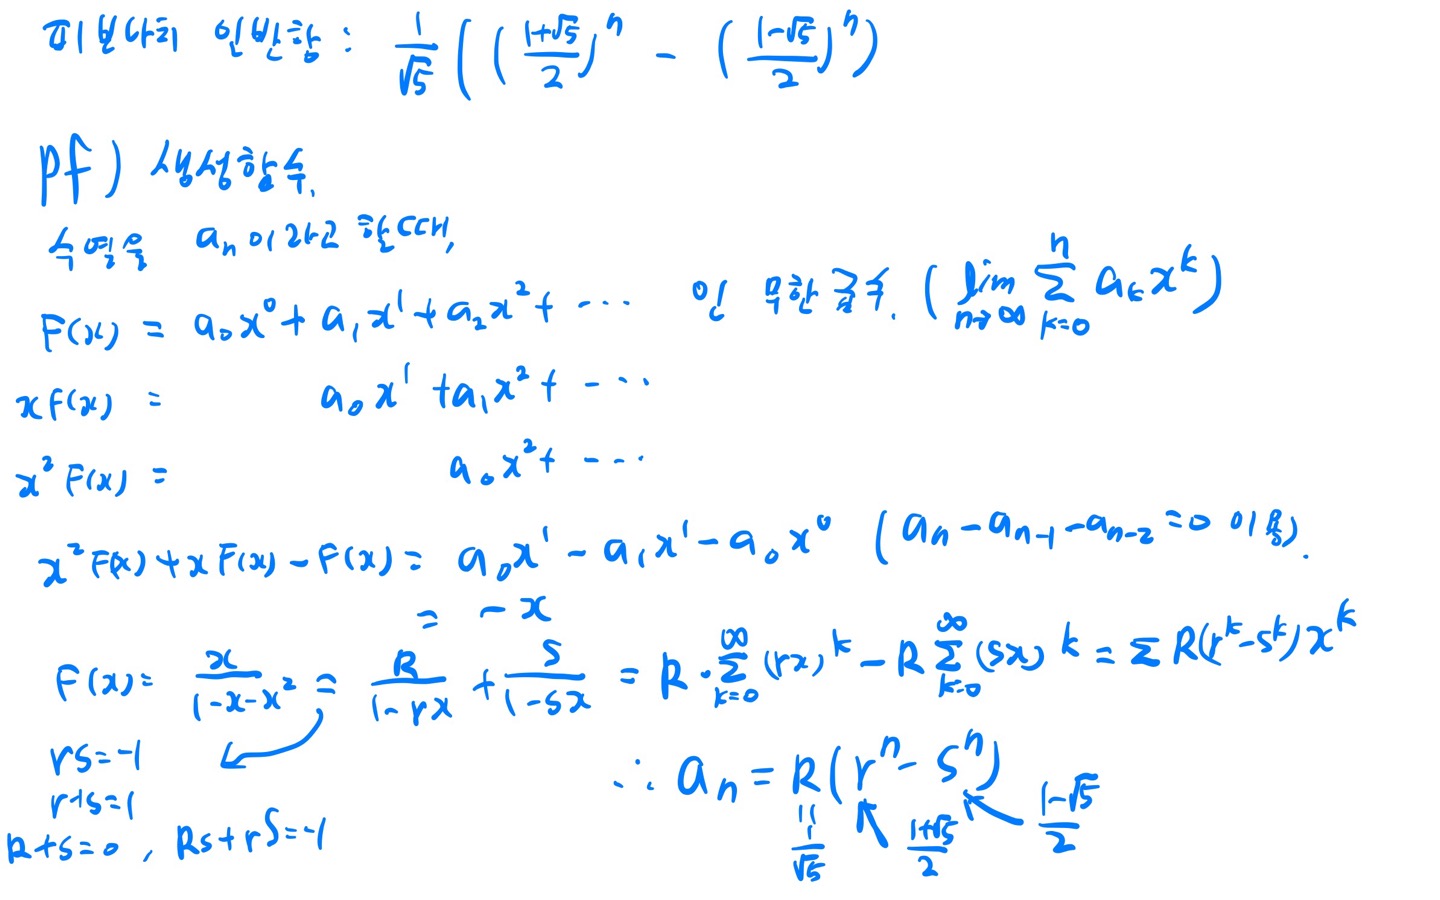 피보나치 일반항 : 1/√5 ( ((1+√5)/2)^n - ((1-√5)/2)^n )
pf) 생성함수.
수열을 a_n 이라고 할때,
F(x) = a_0x^0 + a_1x^1 + a_2x^2 + ··· 인 무한급수. ( lim_{n→∞} Σ_{k=0}^{n} a_k x^k )
xF(x) = a_0x^1 + a_1x^2 + ···
x^2 F(x) = a_0x^2 + ···
x^2 F(x) + xF(x) - F(x) = a_0x^1 - a_1x^1 - a_0x^0 ( a_n - a_{n-1} - a_{n-2} = 0 이용).
= -x
F(x) = x/(1-x-x^2) = R/(1-rx) + S/(1-sx) = R·Σ_{k=0}^{∞} (rx)^k - R Σ_{k=0}^{∞} (sx)^k = Σ R(r^k - s^k) x^k
rs = -1
r+s = 1
R+S = 0 , Rs + rS = -1
∴ a_n = R(r^n - s^n)
=
1/√5 (1+√5)/2 (1-√5)/2